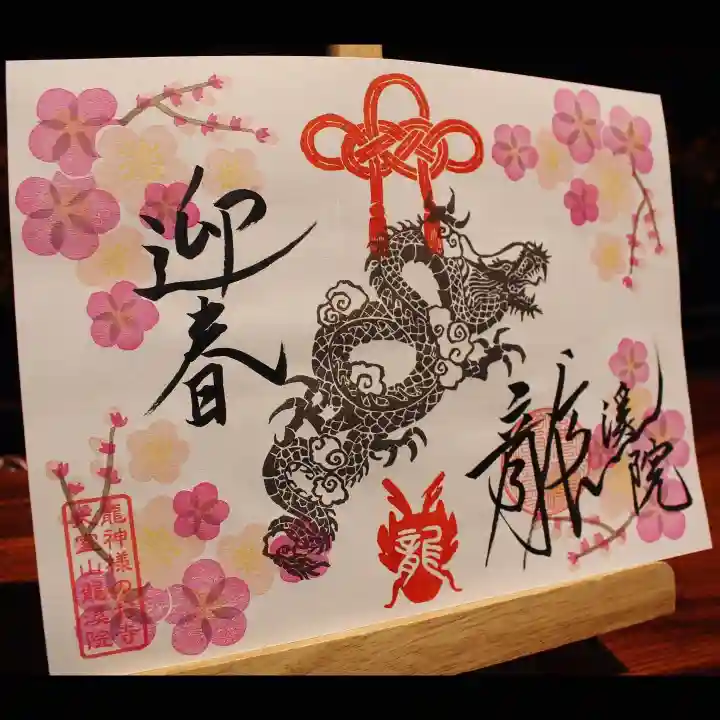 迎春
龍
溪院
龍
龍神様のお寺
山龍溪院